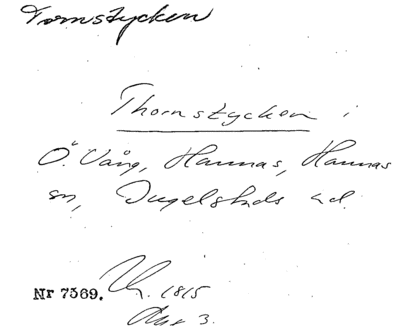 Tornstycken
Thornstycken i
Ö. Vång, Hannas, Hannas
sn, Ingelstads hd.
Nr 7369. 1815
Akt 3.